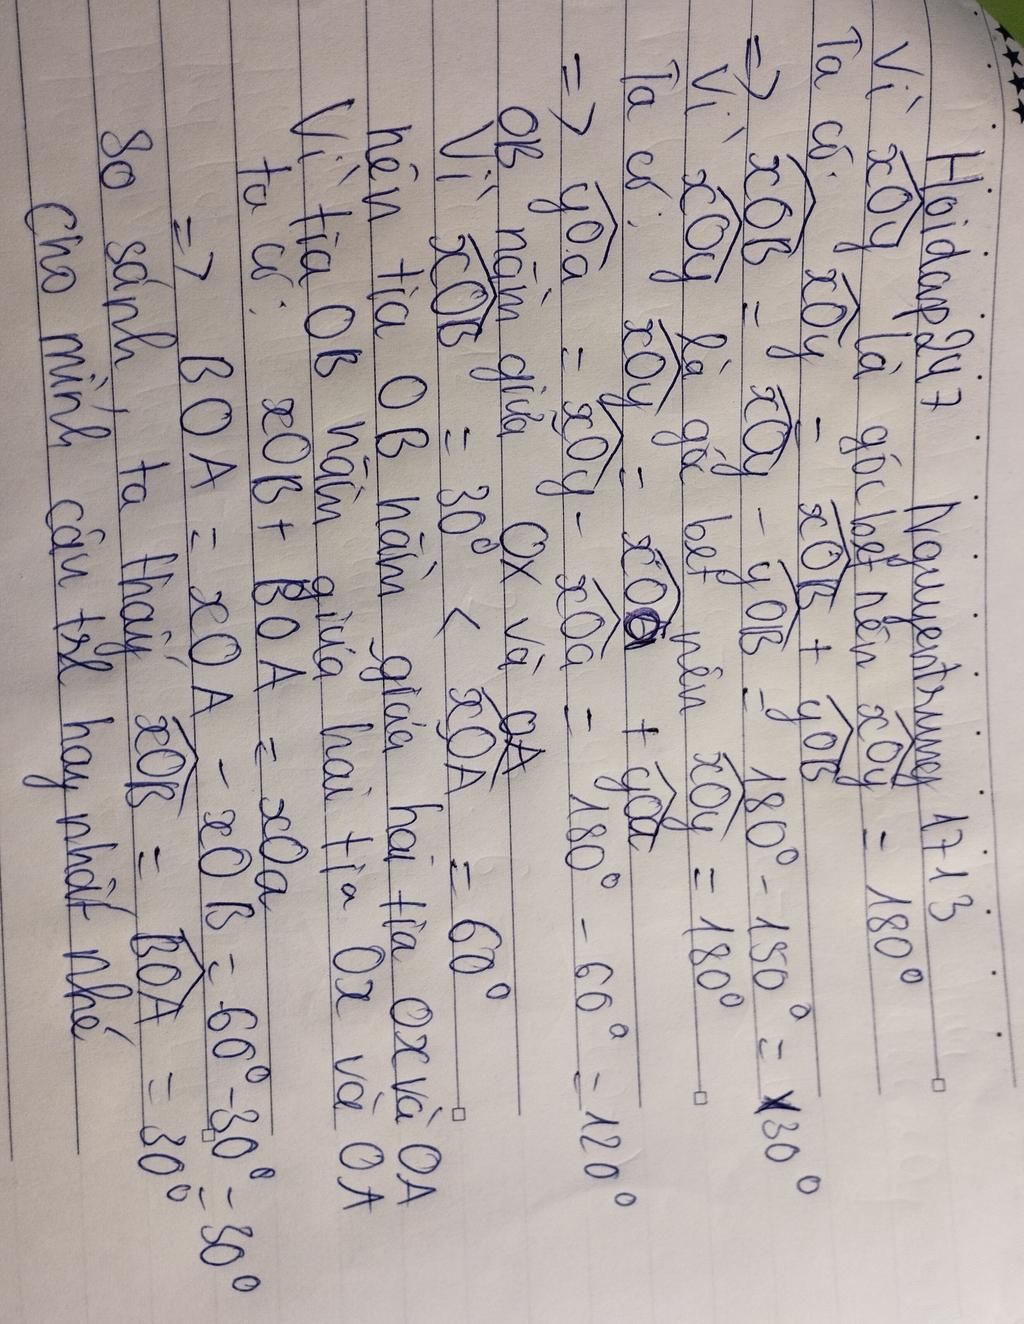 Hoidap247 Nguyentrung 1713
Vì xOy là góc bẹt nên xOy = 180°
Ta có: xOy = xOB + yOB
=> xOB = xOy - yOB = 180° - 150° = 30°
Vì xOy là gó bẹt nên xOy = 180°
Ta có: xOy = xOa + yOa
=> yOa = xOy - xOa = 180° - 60° = 120°
OB nằm giữa Ox và OA
Vì xOB = 30° < xOA = 60°
nên tia OB nằm giữa hai tia Ox và OA
Vì tia OB nằm giữa hai tia Ox và OA
ta có: xOB + BOA = xOa
=> BOA = xOA - xOB = 60° - 30° = 30°
so sánh, ta thấy xOB = BOA = 30°
Cho mình câu trl hay nhất nhé